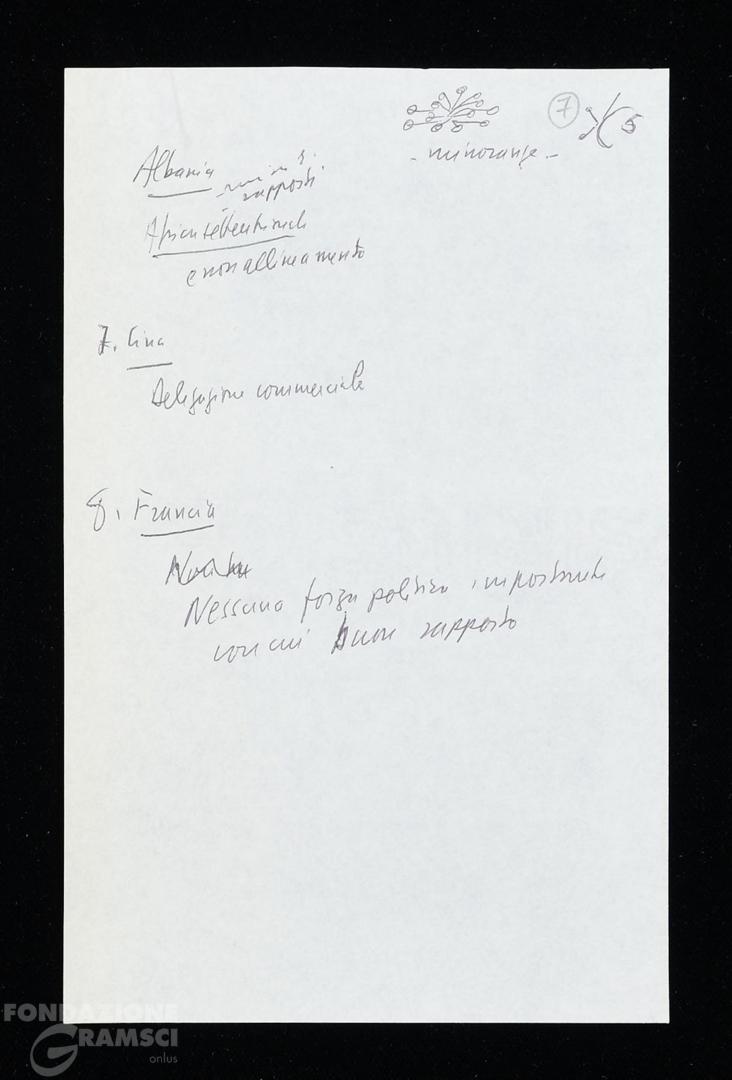 7
5
- minoranze -
Albania
rapporti
Africa settentrionale
e non allineamento
7. Cina
Delegazione commerciale
8. Francia
Nessuna forza politica importante
con cui buon rapporto
FONDAZIONE
GRAMSCI
onlus